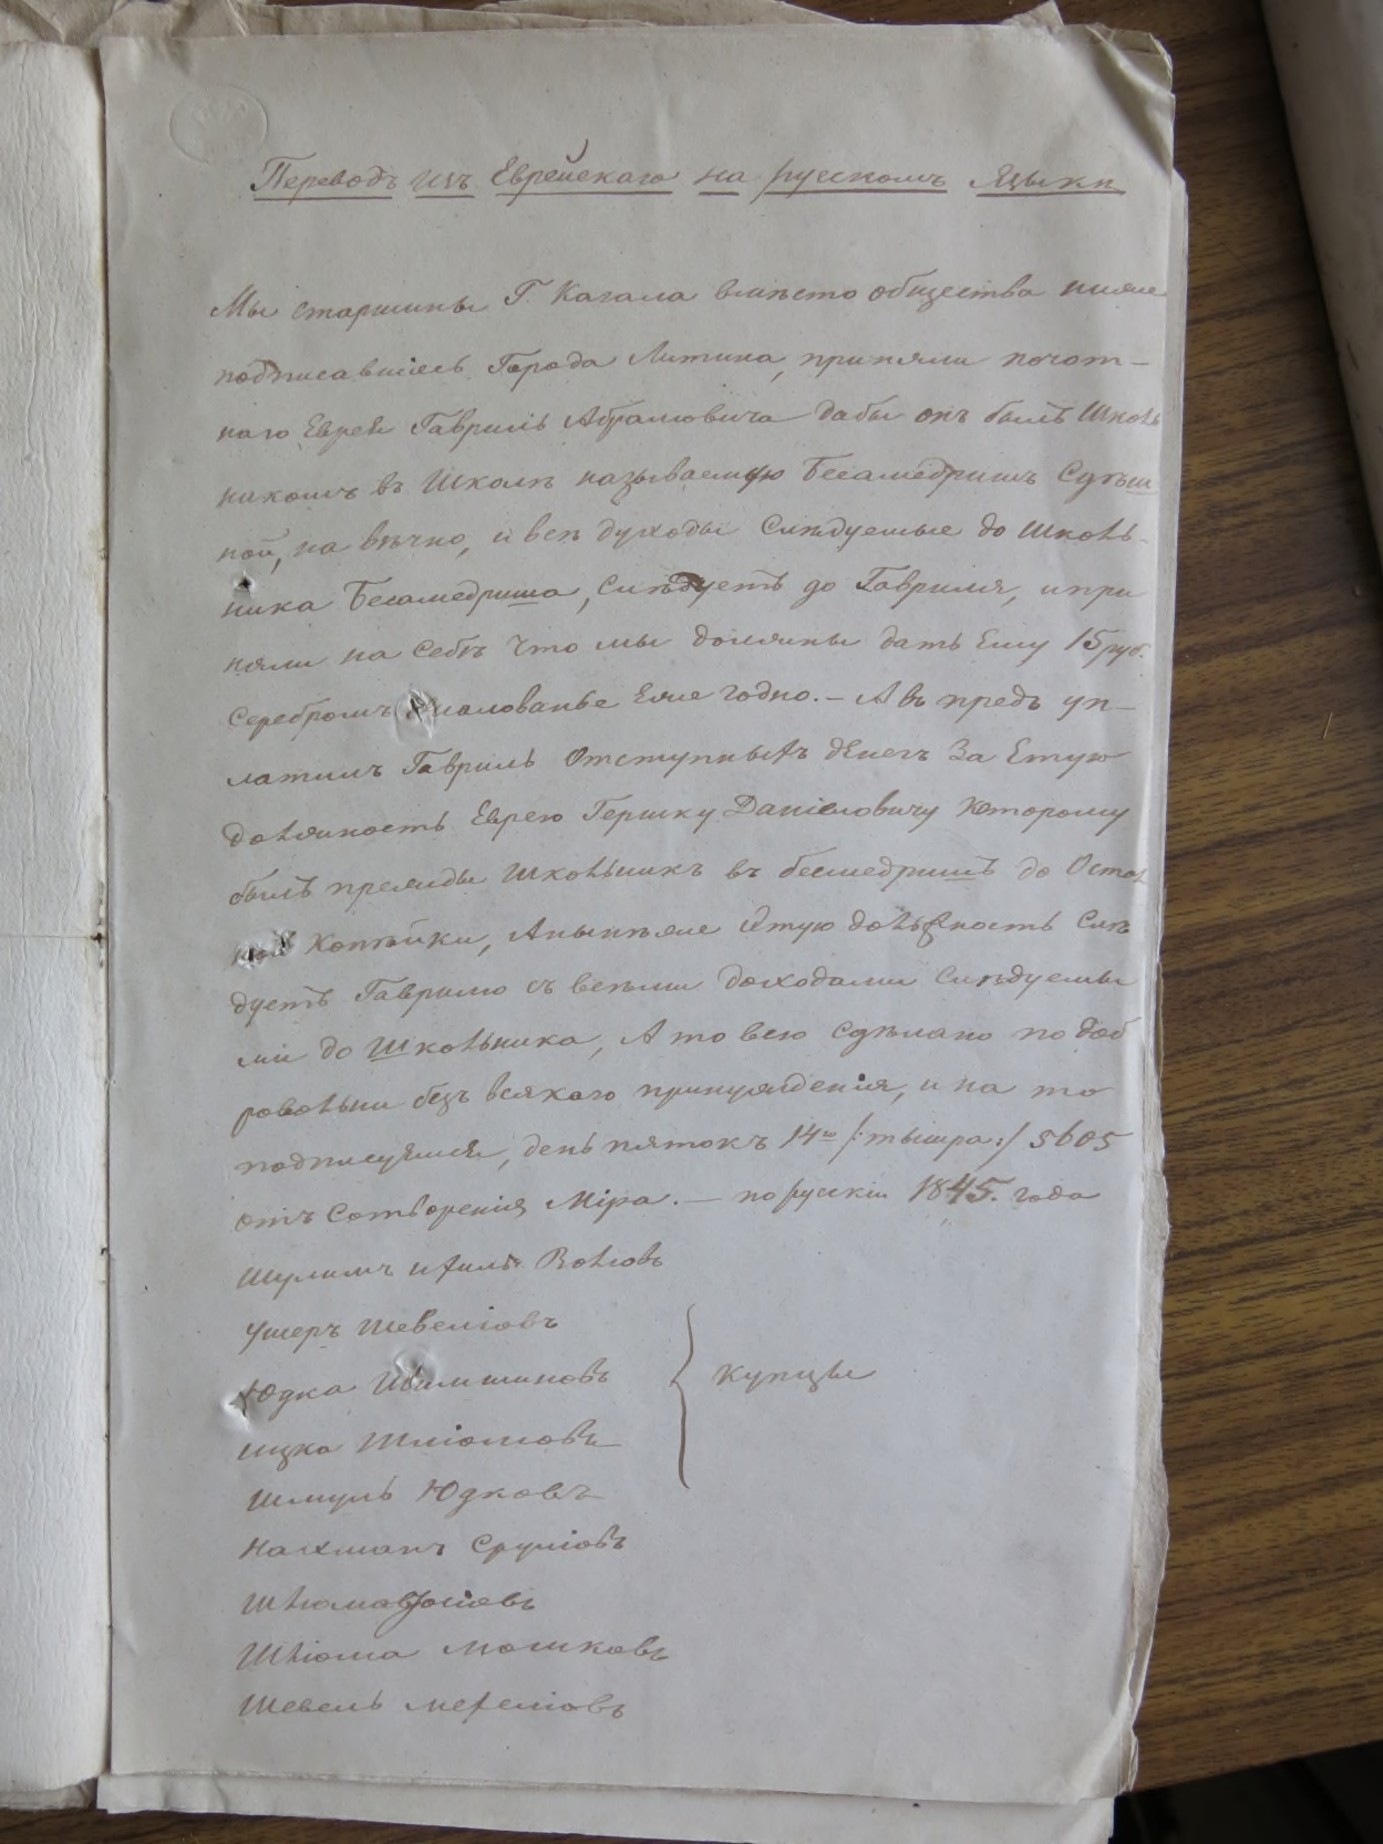 Переводъ изъ Еврейскаго на русскомъ Языки
Мы старшины Г. Кагала вмѣсто общества ниже
подписавшіесь Города Литина, приняли почот-
наго Еврея Гавриль Абрамовича дабы онъ былъ Школь
никомъ въ Школѣ называемую Бесамедришъ Сдѣш
ной, на вѣчно, и всѣ духоды Слѣдуемые до школь-
ника Бесамедриша, Слѣдуетъ до Гавриля, и при
няли на Себѣ Что мы должны дать Ему 15 руб.
Серебромъ жалованье Еже годно. – А въ предъ уп-
латилъ Гавриль Отступныхъ денегъ За Етую
должность Еврею Гершку Даніеловичу Которому
былъ прежды школьникъ въ бесмедришѣ до Остат
ной Копѣйки, А нынѣже Етую должность Слѣ
дуетъ Гаврилю съ всѣми доходами Слѣдуемы
ми до Школьника, А то всю сдѣлано по доб
ровольни безъ всякаго принужденія, и на то
подписуемся, день пятокъ 14го /:тышра:/ 5605
отъ Сотворенія Міра. – по рускіи 1845. года
Шулимъ Волковъ
Ушеръ Шевеліовъ
Юдка
Ицка Шліомовъ
Шмуль Юдковъ
Нахманъ Сруліовъ
Шліома Іосіовъ
Шліома Мошковъ
Шевель
Купцы